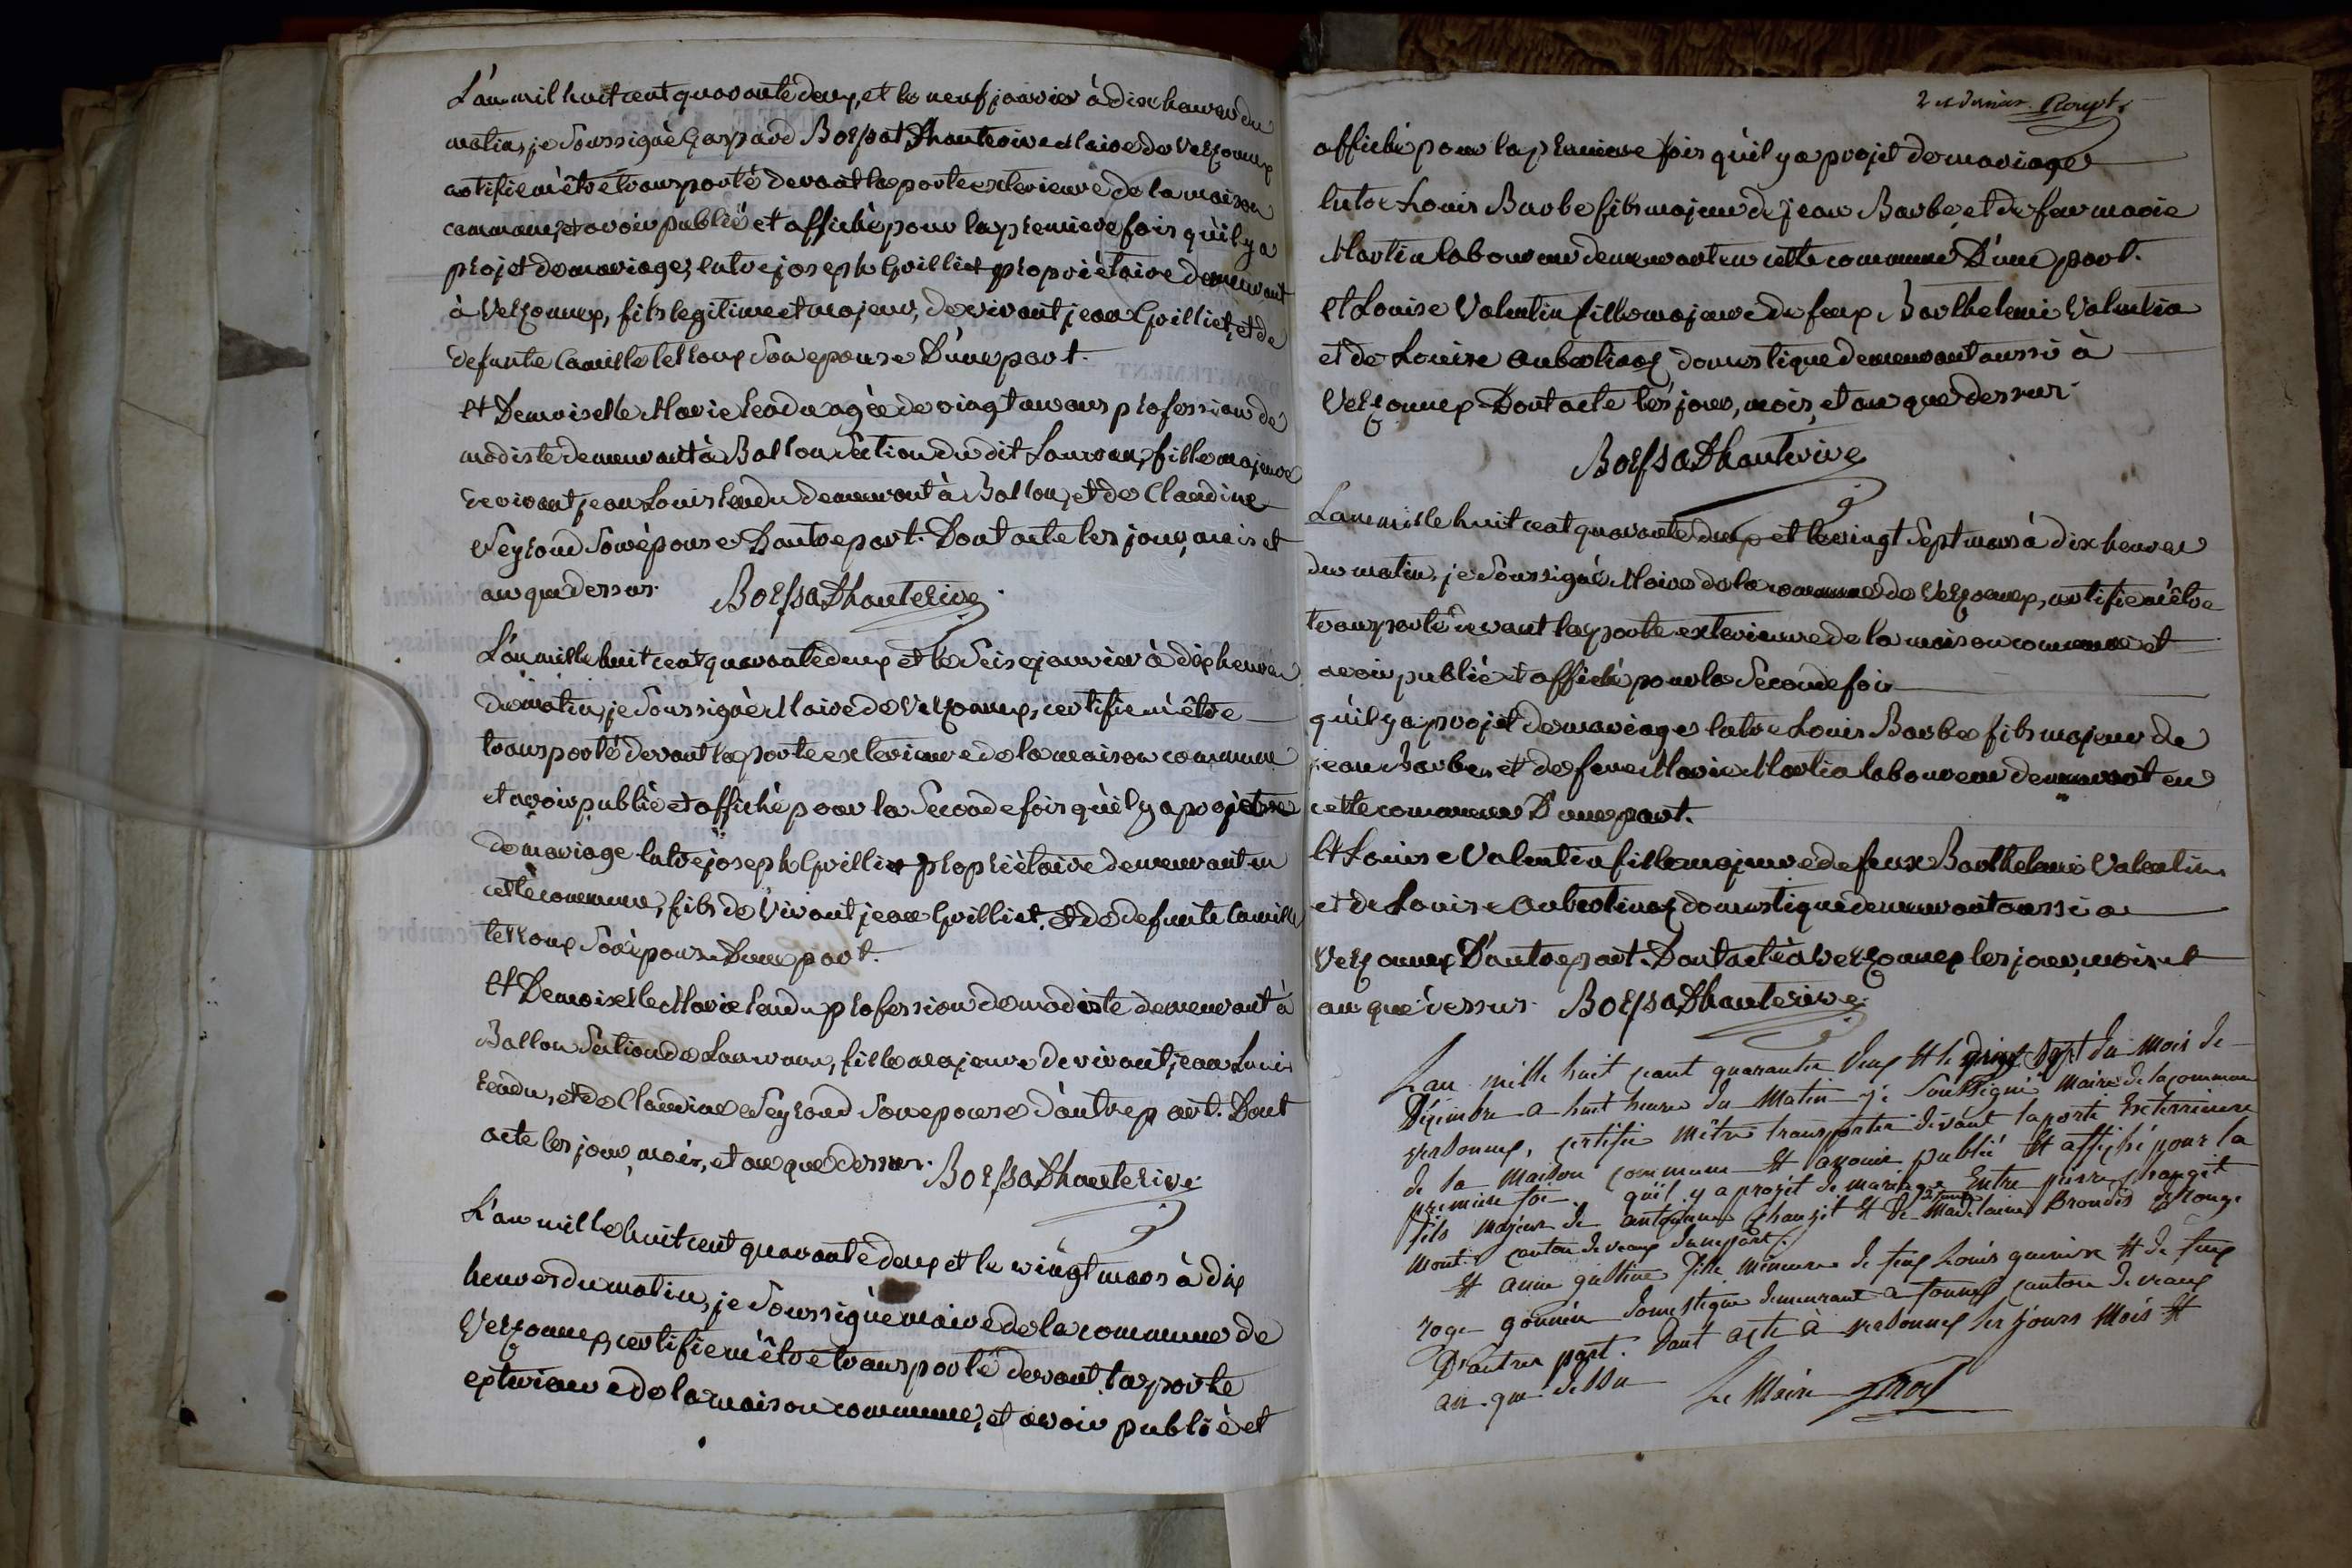 L'an mil huit cent quarante deux, et le neuf janvier à dix heures du
matin, je soussigné Gaspard Boëssat Dhauterive Maire de Versonnex
certifie m'être transporté devant la porte exterieure de la maison
commune, et avoir publié et affiché pour la premiere fois qu'il y a
projet de mariage, entre joseph Grilliet propriètaire demeurant
à Versonnex, fils legitime et majeur, de vivant jean Grilliet, et de
defunte Camille Leroux Son epouse D'une part.
et Demoiselle Marie Rendu agèe de vingt un ans profession de
modiste demeurant à Ballon Section du dit Lancran, fille majeure
de vivant jean Louis Rendu demeurant à Ballon, et de Claudine
Seyraud Son épouse D'autre part. Dont acte les jour, mois et
an que dessus. Boëssat Dhauterive
L'an mille huit cent quarante deux et le Seise janvier à dix heures
du matin, je Soussigné Maire de Versonnex, certifie m'être
transporté devant la porte exterieure de la maison commune
et avoir publiè et affiché pour la Seconde fois qu'il y a projet
de mariage entre joseph Grilliet propriètaire demeurant en
cette commune, fils de Vivant jean Grilliet, et de defunte Camille
Leroux Son èpouse D'une part.
et Demoiselle Marie Rendu profession de modiste demeurant à
Ballon Section de Lancrans, fille majeure de vivant jean Louis
Rendu, et de Claudine Seyraud Son epouse d'autre part. Dont
acte les jour, mois, et an que dessus. Boëssat Dhauterive
L'an mille huit cent quarante deux et le vingt mars à dix
heures du matin, je Soussignè maire de la commune de
Versonnex, certifie m'être transporté devant la porte
exterieure de la maison commune, et avoir publié et
2 et dernier
affiché pour la premiere fois qu'il y a projet de mariage
entre Louis Barbe fils majeur de jean Barbe et de feu marie
Martin laboureur demeurant en cette commune D'une part.
et Louise Valentin fille majeure de feux Barthelemi Valentin
et de Louise domestique demeurant aussi à
Versonnex Dont acte les jour, mois, et an que dessus.
Boëssat Dhauterive
L'an mille huit cent quarante deux et le vingt Sept mars à dix heures
du matin, je Soussigné Maire de la commune de Versonnex, certifie m'être
transporté devant la porte exterieure de la maison commune et
avoir publié et affiché pour la Seconde fois
qu'il y a projet de mariage entre Louis Barbe fils majeur de
jean Barbe, et de feue Marie Martin laboureur demeurant en
cette commune D'une part.
et Louise Valentin fille majeure de feux Barthelemi Valentin
et de Louise domestique demeurant aussi a
Versonnex D'autre part. Dont acte à Versonnex les jour, mois et
an que dessus. Boëssat Dhauterive
L'an mille huit cent quarante deux et le vingt sept du mois de
Décembre a huit heures du Matin je Soussigné Maire de la commune
versonnex, certifie mêtre transporter devant la porte Exterrieure
de la Maison commune et avoir publié et affiché pour la
premiere foi qu'il y a projet de mariage Entre pierre changit
fils majeur de antoine changit et de Madelaine Brondès
mont canton de veaux d'une part.
et anne fille mineure de feux Louis et de feux
domestique demeurant a canton de veaux
D'autre part. Dont acte à versonnex les jours Mois et
an que dessu Le Maire